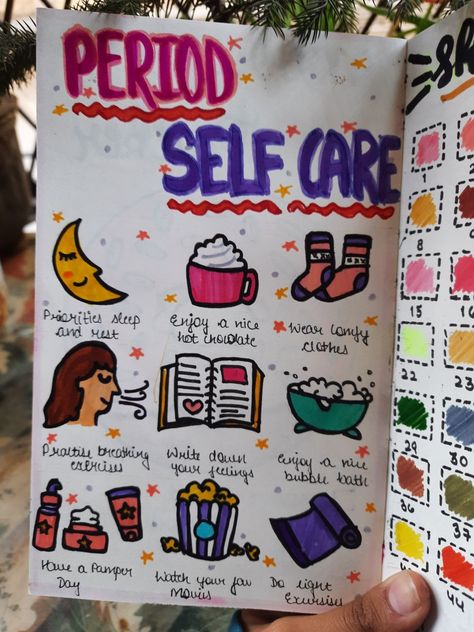 PERIOD
SELF CARE
Priorities sleep
and rest
Enjoy a nice
hot chocolate
Wear Comfy
clothes
Practise breathing
exercises
Write down
your feelings
Enjoy a nice
bubble bath
Have a Pamper
Day
Watch your fav
Movies
Do light
Excursises
8
15
16
22
29
30
36
37
44